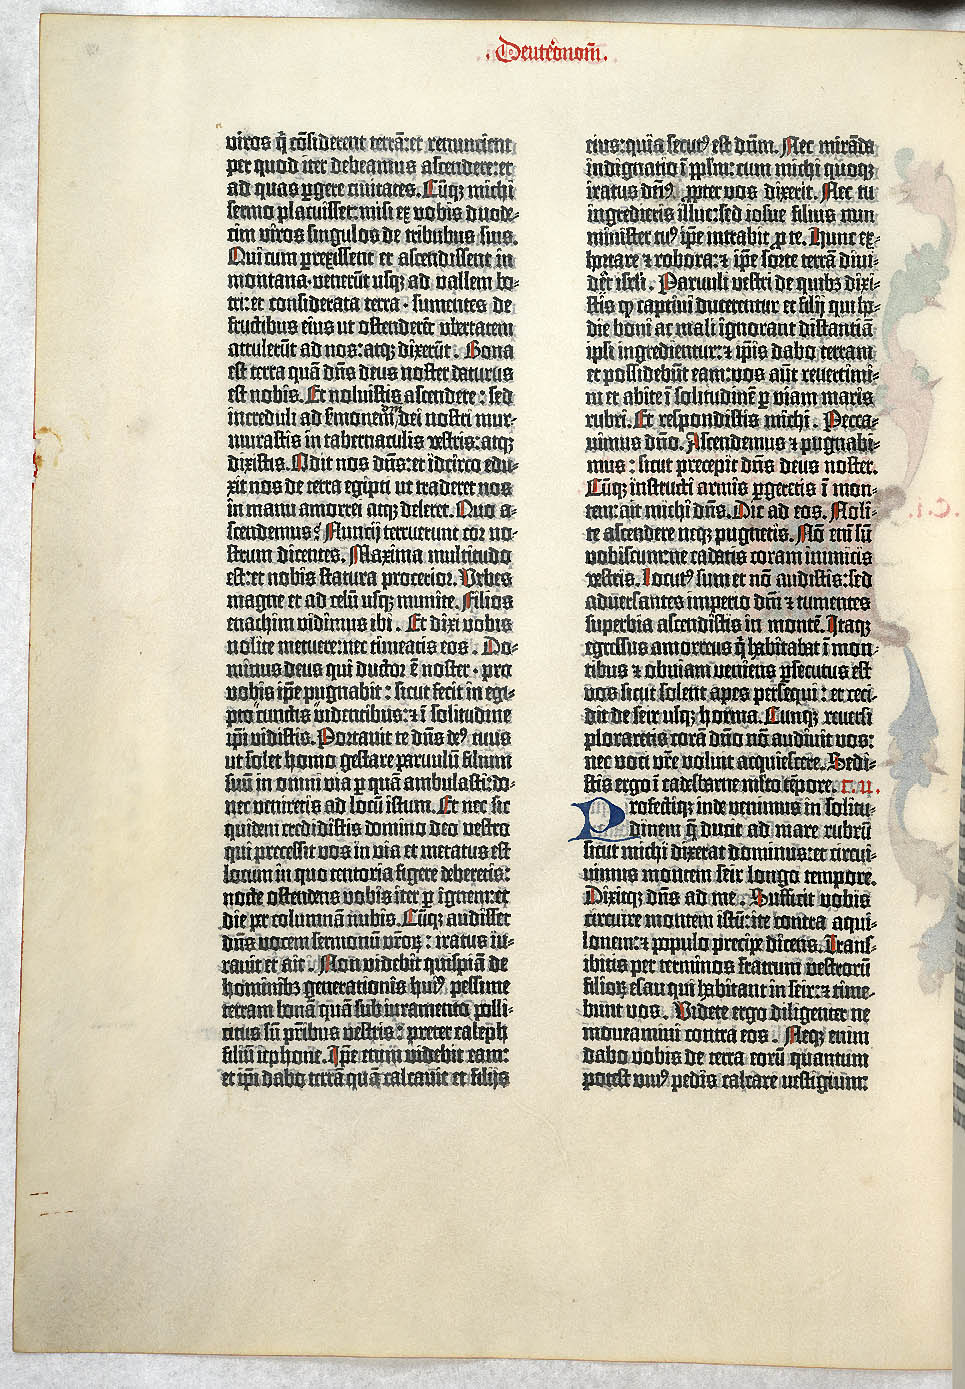 .Deuteronom̄.
viros q̄ cōsiderent terrā: et renuncient
per quod iter debeamus ascendere: et
ad quas ꝑgere civitates. Cūqꝫ michi
sermo placuisset: misi ex vobis duode-
cim viros singulos de tribubus suis.
Qui cum ꝑrexissent et ascendissent in
montana · venerūt usqꝫ ad vallem bo-
tri: et considerata terra · sumentes de
fructibus eius ut ostenderēt ubertatem
attulerūt ad nos: atqꝫ dixerūt. Bona
est terra quā dn̄s deus noster daturus
est nobis. Et noluistis ascendere: sed
increduli ad s̄monem dei nostri mur-
murastis in tabernaculis vestris: atqꝫ
dixistis. Odit nos dn̄s: et idcirco edu-
xit nos de terra egipti ut traderet nos
in manu amorrei atqꝫ deleret. Quo a-
scendemus? Nuncij terruerunt cor no-
strum dicentes. Maxima multitudo
est: et nobis statura procerior. Urbes
magne et ad celū usqꝫ munite. Filios
enachim vidimus ibi. Et dixi vobis
nolite metuere: nec timeatis eos. Do-
minus deus qui ductor ē noster · pro
vobis ip̄e pugnabit: sicut fecit in egi-
pto cunctis videntibus: ⁊ ī solitudine
ip̄i vidistis. Portavit te dn̄s deꝰ tuus
ut solet homo gestare parvulū filium
suū in omni via ꝑ quā ambulasti: do-
nec veniretis ad locū istum. Et nec sic
quidem credidistis domino deo vestro
qui precessit vos in via et metatus est
locum in quo tentoria figere deberetis:
nocte ostendens vobis iter ꝑ ignem: et
die per columnā nubis. Cūqꝫ audisset
dn̄s vocem sermonū vr̄oꝝ: iratus iu-
ravit et ait. Non videbit quispiā de
hominibꝫ generationis huiꝰ pessime
terram bonā quā sub iuramento polli-
citus sū pr̄ibus vestris: preter caleph
filiū iephone. Ip̄e enim videbit eam:
et ip̄i dabo terrā quā calcavit et filijs
eius: quia secutꝰ est dn̄m. Nec mirāda
indignatio ī pp̄lm: cum michi quoqꝫ
iratus dn̄s ꝓpter vos dixerit. Nec tu
ingredieris illuc: sed iosue filius nun
minister tuꝰ ip̄e intrabit ꝓ te. Hunc ex-
hortare ⁊ robora: ⁊ ip̄e sorte terrā divi-
det isrl̄i. Parvuli vestri de quibꝫ dixi-
stis ꝙ captivi ducerentur et filij qui ho-
die boni ac mali ignorant distantiā
ipsi ingredientur: ⁊ ip̄is dabo terram
et possidebūt eam: vos aūt revertimi-
ni et abite ī solitudinē ꝑ viam maris
rubri. Et respondistis michi. Pecca-
vimus dn̄o. Ascendemus ⁊ pugnabi-
mus: sicut precepit dn̄s deus noster.
Cūqꝫ instructi armis ꝑgeretis ī mon-
tem: ait michi dn̄s. Dic ad eos. Noli-
te ascendere neqꝫ pugnetis. Nō eni sū
vobiscum: ne cadatis coram inimicis
vestris. Locutꝰ sum et nō audistis: sed
adversantes imperio dn̄i ⁊ tumentes
superbia ascendistis in montē. Itaqꝫ
egressus amorreus q̄ habitabat ī mon-
tibus ⁊ obviam veniens ꝑsecutus est
vos sicut solent apes persequi: et ceci-
dit de seir usqꝫ horma. Cunqꝫ reversi
ploraretis corā dn̄o nō audivit vos:
nec voci vr̄e voluit acquiescere. Sedi-
stis ergo ī cadesbarne ml̄to tēpore. c. ii.
Profectiqꝫ inde venimus in solitu-
dinem q̄ ducit ad mare rubrū
sicut michi dixerat dominus: et circui-
vimus montem seir longo tempore.
Dixitqꝫ dn̄s ad me. Sufficit vobis
circuire montem istū: ite contra aqui-
lonem: ⁊ populo precipe dicens. Trans-
ibitis per terminos fratrum vestrorū
filioꝝ esau qui habitant in seir: ⁊ time-
bunt vos. Videte ergo diligenter ne
moveamini contra eos. Neqꝫ enim
dabo vobis de terra eorū quantum
potest uniꝰ pedis calcare vestigium: